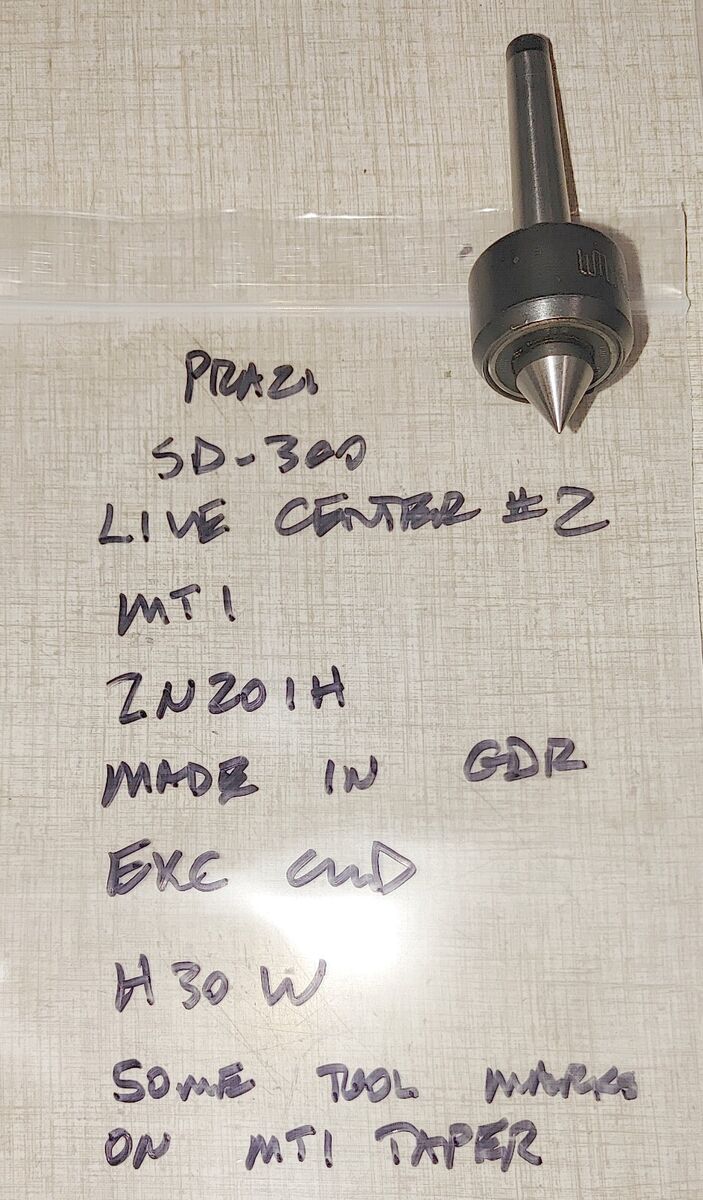 PRAZI
SD-300
LIVE CENTER #2
MT1
ZN201H
MADE IN GDR
EXC CND
H30W
SOME TOOL MARKS
ON MT1 TAPER